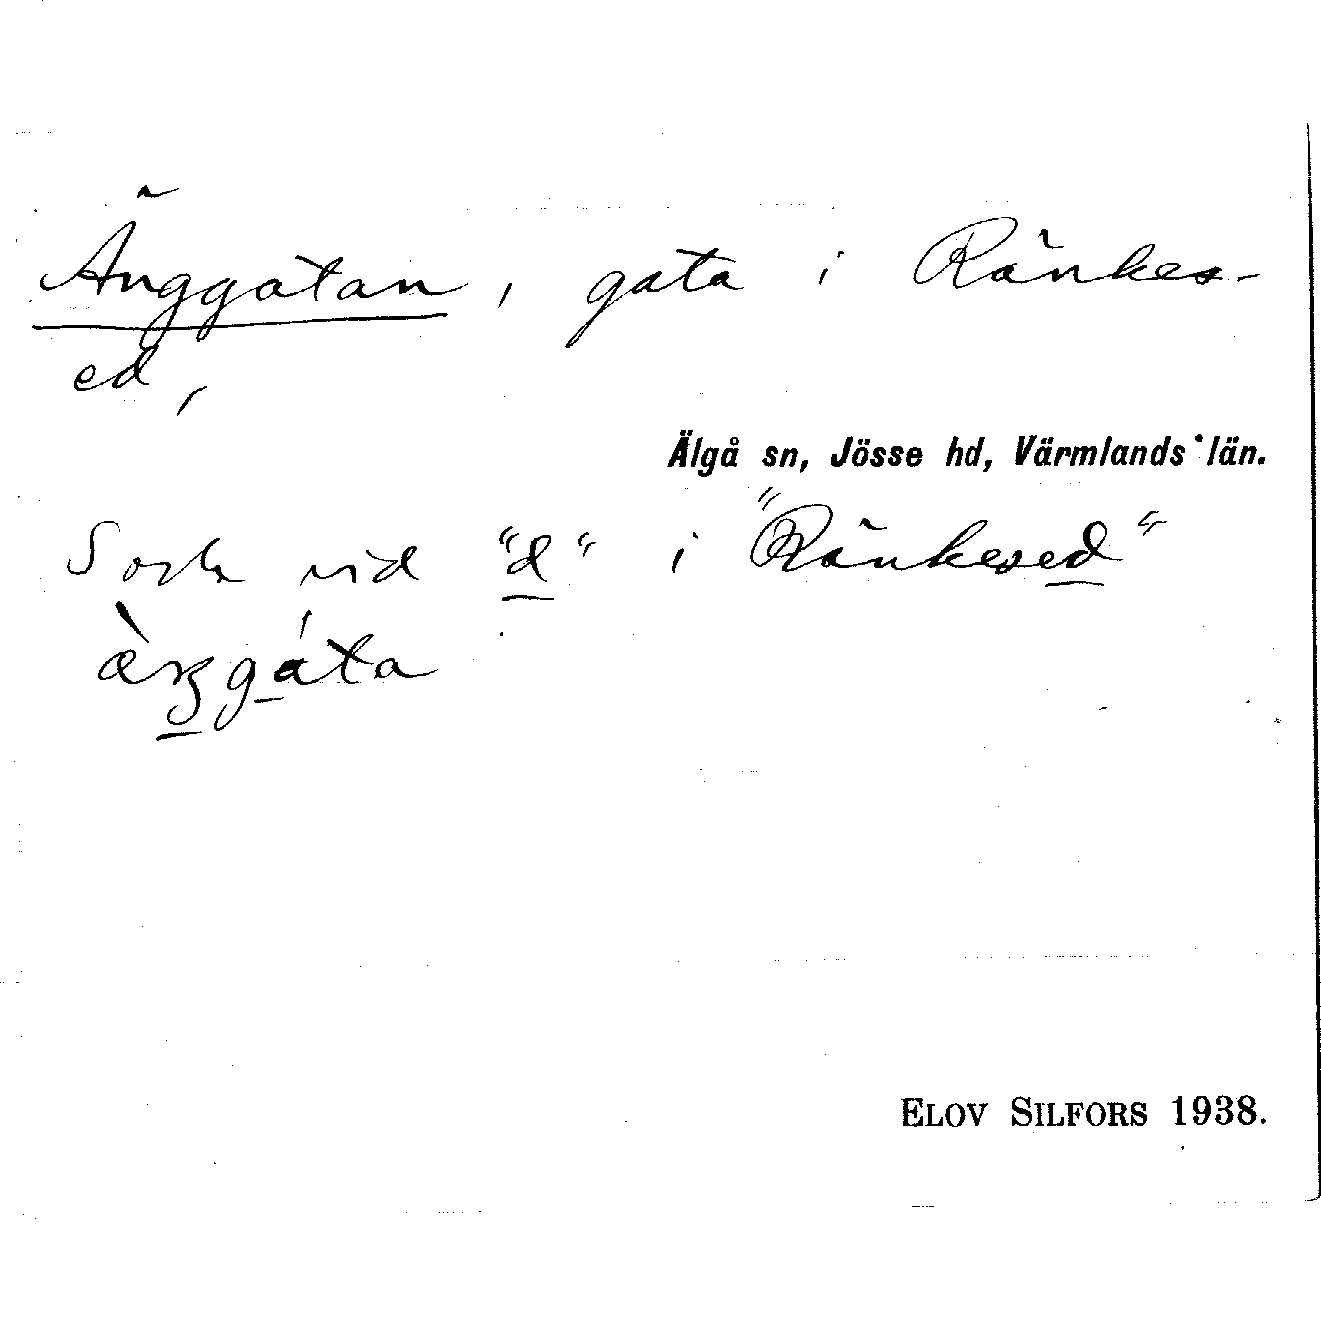 Änggatan, gata i Ränkes-
ed,
Älgå sn, Jösse hd, Värmlands län.
vid "d" i "Ränkesed"
ELOV SILFORS 1938.